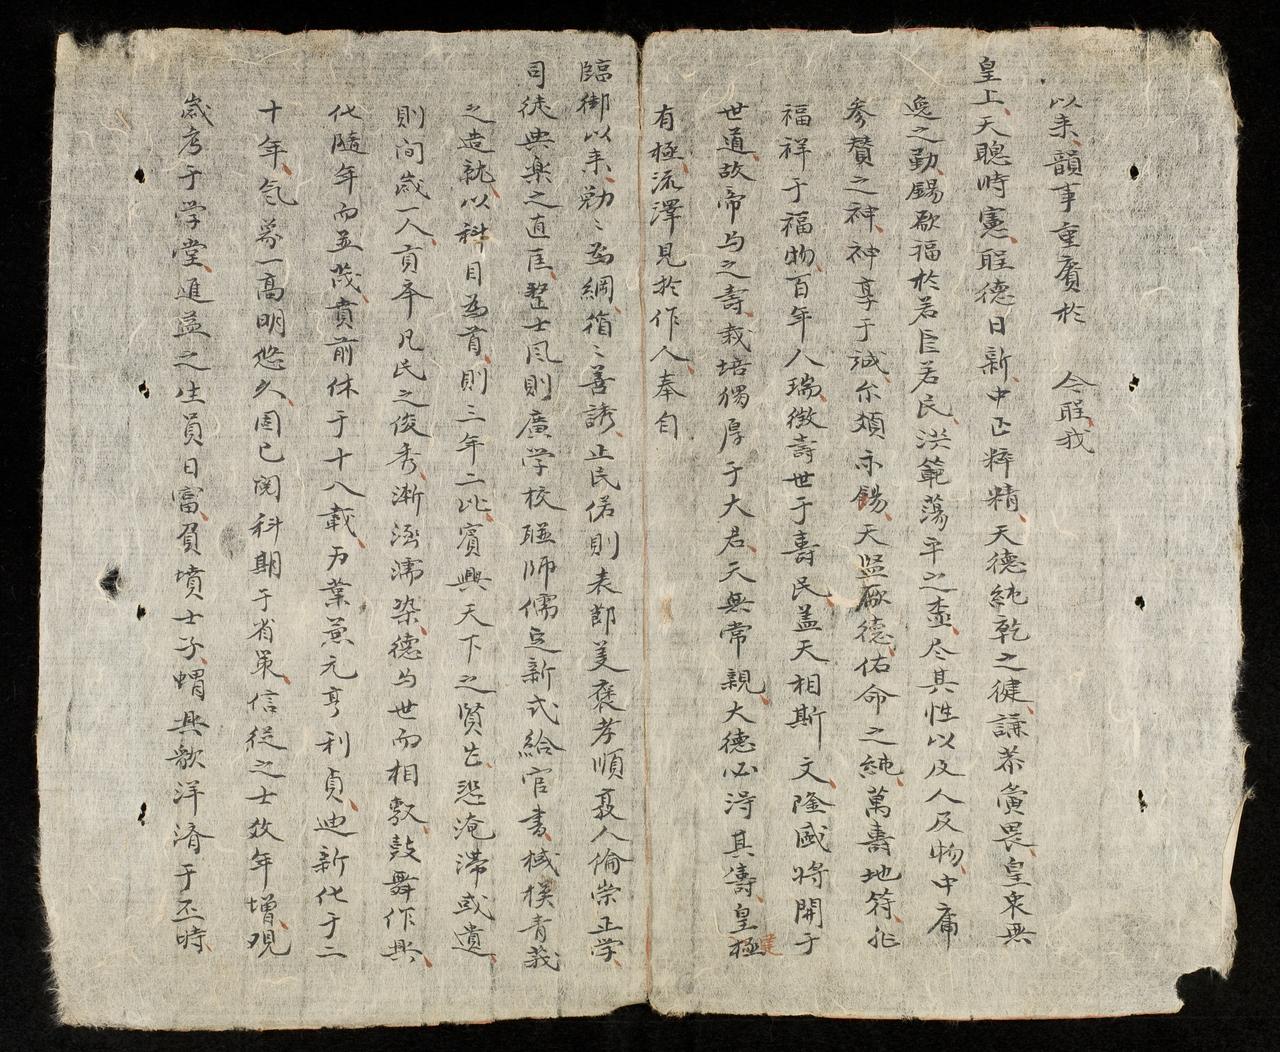 以来韻事重賡於 今聖我
皇上天聰時憲聖德日新中正粹精天德純乾之健謙恭寅畏皇衷無
逸之勤錫厥福於若臣若民洪範蕩平之極尽其性以及人及物中庸
参賛之神神享于誠尔類亦錫天监厥德佑命之純萬壽地符
福祥于福物百年人瑞徵壽世于壽民盖天相斯文隆盛将開于
世道故帝与之壽栽培獨厚于大君天無常親大德必得其壽皇極建
有極流澤見於作人奉自
臨御以来勤〻為綱循〻善誘正民俗則表節義褒孝順敦人倫崇正学
司徒典楽之直匡整士風則廣学校聯師儒定新式給官書棫樸菁莪
之造就以科目為首則三年二比賓興天下之賢㤙淹滞或遺
則间歲一人貢卒凡民之俊秀漸涵濡染德与世而相敷鼓舞作興
化隨年而並茂賁前休于十八載力葉黄元亨利貞迪新化于二
十年気象一高明悠久固已閲科期于省策信從之士效年增观
歲考于学堂進益之生員日富負墳士子蝟興歌洋濟于丕時